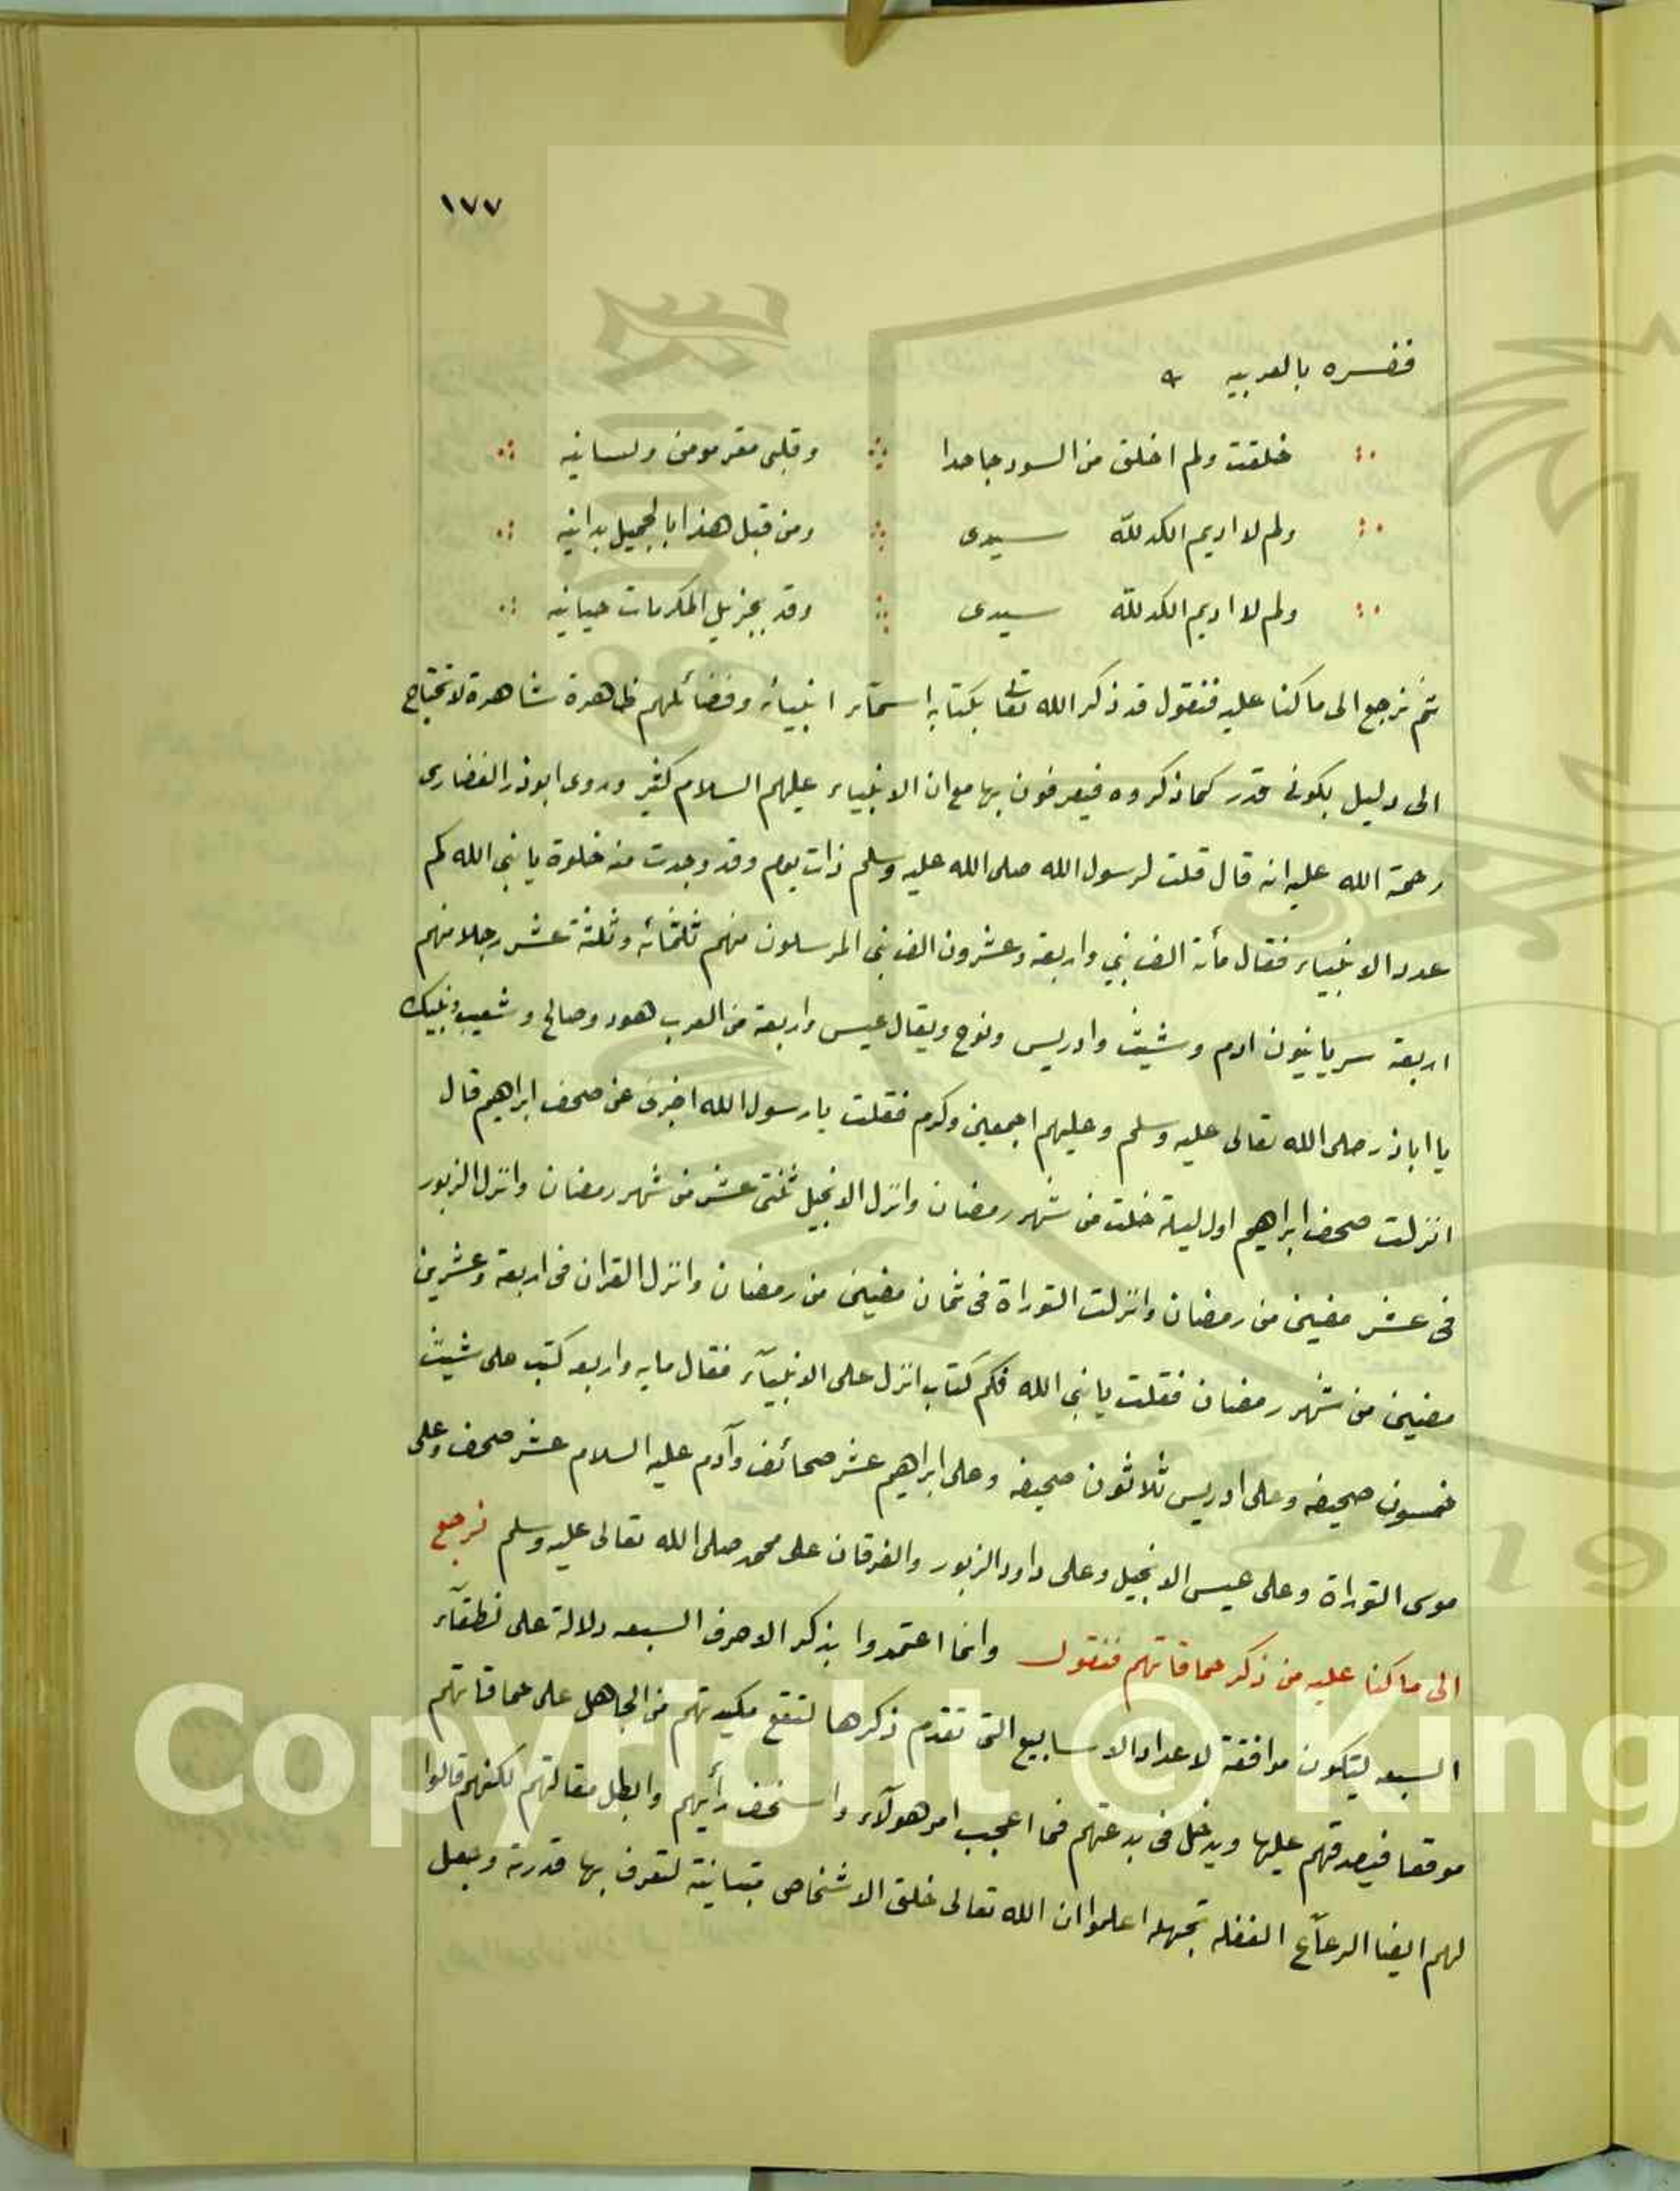 ١٧٧
ففسره بالعربيه
خلقت ولم اخلق من السود جاحدا وقلبى مقر مومن ولسانيه
ولم لا اديم الكد لله سيدى ومن قبل هذا بالجميل بدانيه
ولم لا اديم الكد لله سيدى وقد بجزيل المكرمات حيانيه
ثم نرجع الى ما كنا عليه فنقول قد ذكر الله تعا بكتابه اسمآء انبيائه وفضائلهم ظاهرة شاهرة لا تحتاج
الى دليل بكونى قدر كما ذكروه فيعرفون بها مع ان الانبياء عليهم السلام كثير وروى ابوذر الغضارى
رحمة الله عليه انه قال قلت لرسول الله صلى الله عليه وسلم ذات يوم وقد وجدت منه خلوة يا نبى الله كم
عدد الانبياء فقال مأة الف نبي واربعة وعشرون الف نبى المرسلون منهم ثلثمائه وثلثة عشر رجلا منهم
اربعة سريانيون ادم وشيث وادريس ونوح ويقال عيسى واربعة من العرب هود وصالح وشعيب ونبيك
يا اباذر صلى الله تعالى عليه وسلم وعليهم اجمعين وكرم فقلت يا رسول الله اخبرنى عن صحف ابراهيم قال
انزلت صحف ابراهيم اول ليلة خلت من شهر رمضان وانزل الانجيل ثنتى عشر من شهر رمضان وانزل الزبور
فى عشر مضين من رمضان وانزلت التوراة فى ثمان مضين من رمضان وانزل القران فى اربعة وعشرين
مضين من شهر رمضان فقلت يا نبى الله فكم كتاب انزل على الانبيآء فقال مايه واربعه كتب على شيث
خمسون صحيفه وعلى ادريس ثلاثون صحيفه وعلى ابراهيم عشر صحائف وآدم عليه السلام عشر صحف وعلى
موسى التوراة وعلى عيسى الانجيل وعلى داود الزبور والفرقان على محمد صلى الله تعالى عليه وسلم نرجع
الى ما كنا عليه من ذكر حماقاتهم فنقول وانما اعتمدوا بذكر الاحرف السبعه دلالة على نطقآء
السبعه ليتكون موافقة لاعداد الاسابيع التى تقدم ذكرها لتقع مكيدتهم من الجاهل على حماقاتهم
موقعا فيصدقهم عليها ويدخل فى بدعتهم فما اعجب امر هولآء واسخف رأيهم وابطل مقالتهم لكنهم قالوا
لهم ايضا الرعآع الغفله تجهله اعلموا ان الله تعالى خلق الاشخاص متباينة لتعرف بها قدرته وجعل
Copyright © King
19